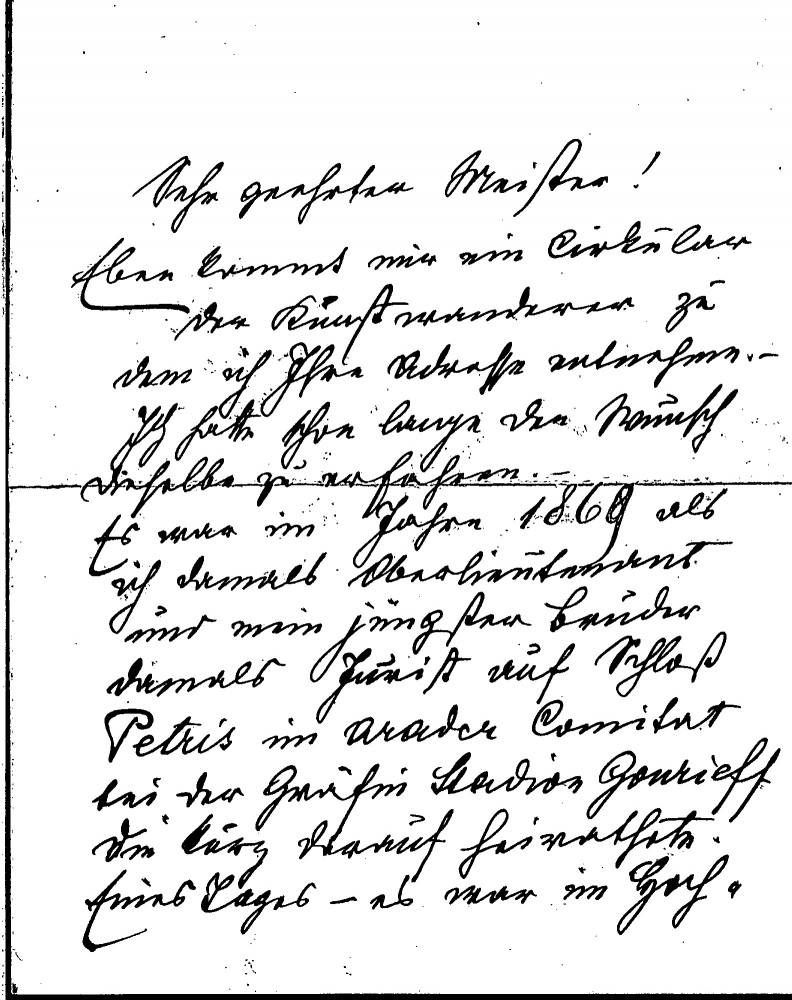 Sehr geehrter Meister!
Eben kommt mir ein Cirkülar
der Kunstwanderer zu
dem ich Ihre Adresse entnehme.–
Ich hatte schon lange den Wunsch
dieselbe zu erfahren.–
Es war im Jahre 1869 als
ich damals Oberlieutenant
und mein jüngster Bruder
damals Jurist auf Schloß
Petris im Arader Comitat
bei der Gräfin Stadion Gourieff
die kurz darauf heirathete.
Eines Tages – es war im Hoch-